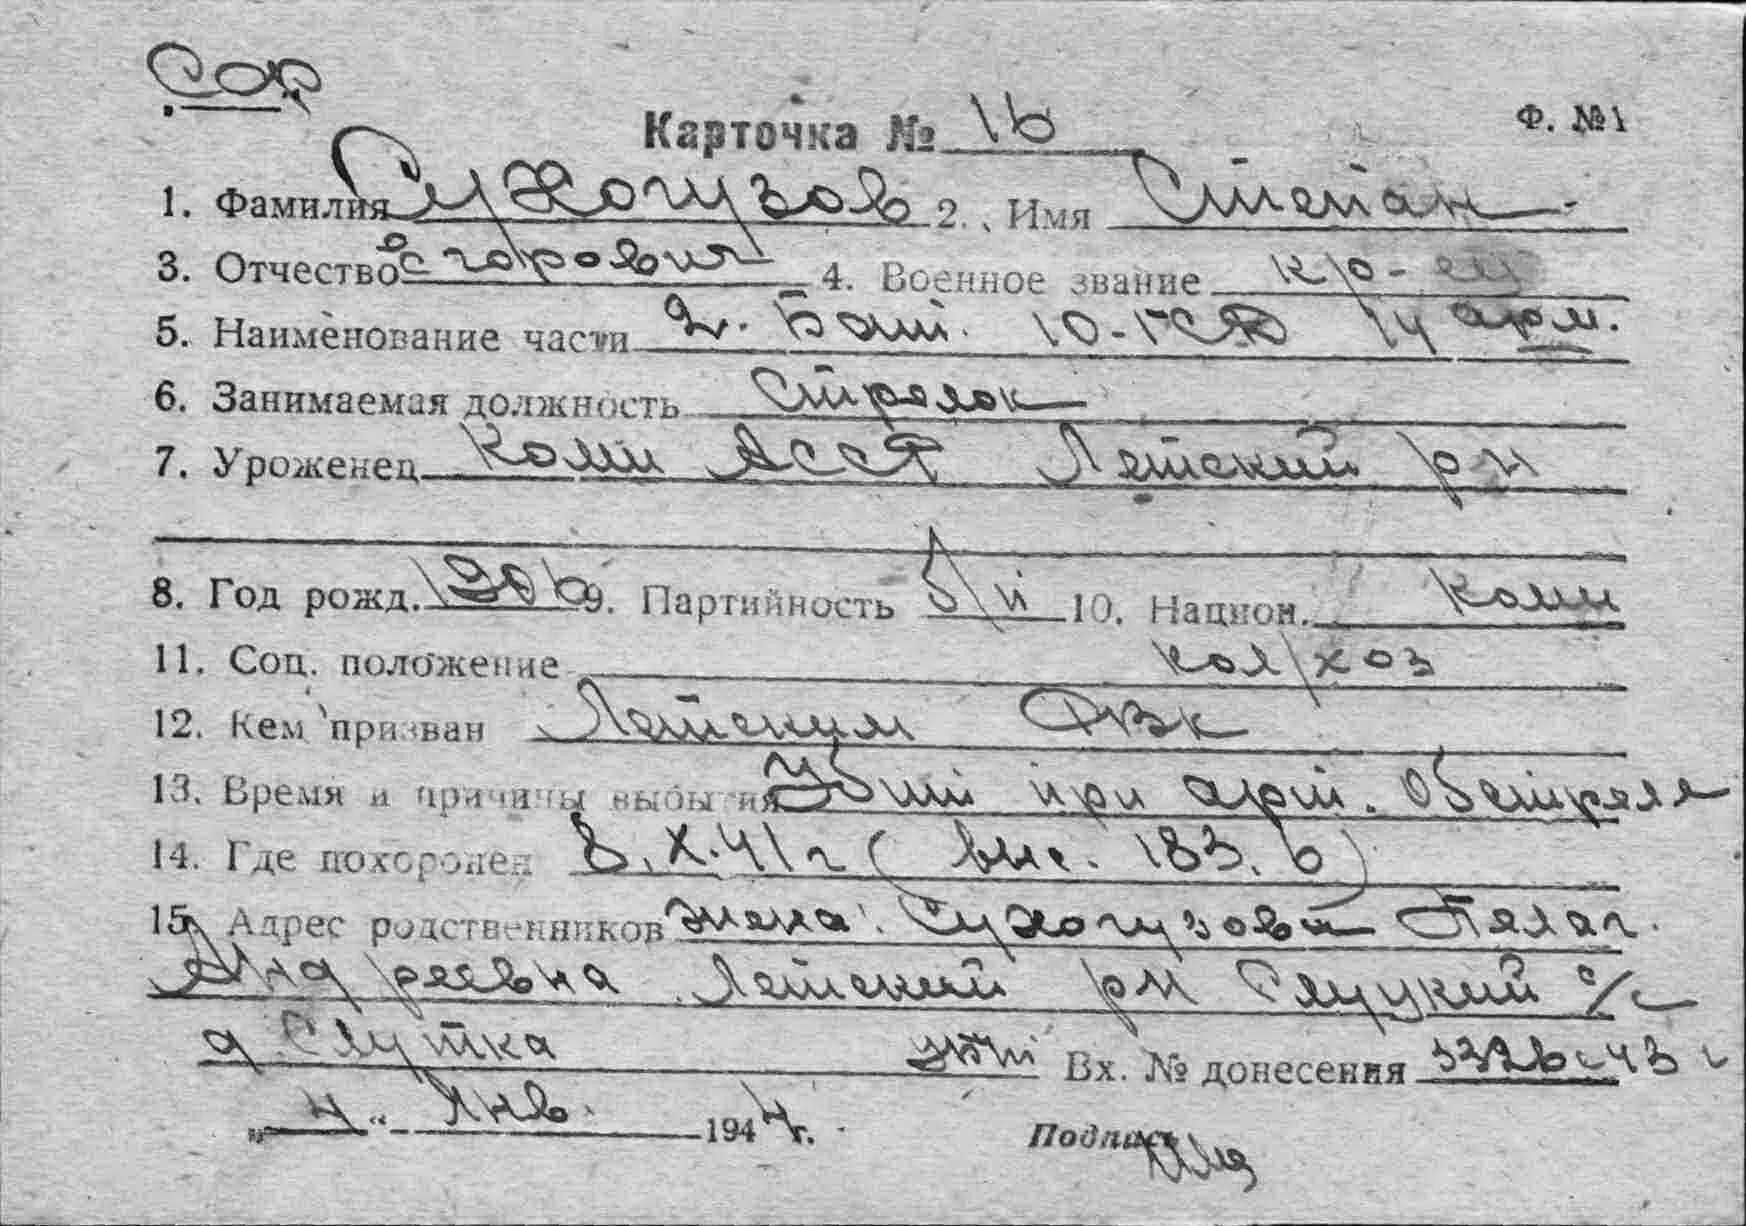 Сор
Карточка № 16 Ф. №1
1. Фамилия Сухогузов 2. Имя Степан
3. Отчество Егорович 4. Военное звание кр-ец
5. Наименование части 2. Бат. 10-ГСД 14 арм.
6. Занимаемая должность Стрелок
7. Уроженец Коми АССР Летский р-н
8. Год рожд. 1906 9. Партийность б/п 10. Национ. Коми
11. Соц. положение кол/хоз
12. Кем призван Летским РВК
13. Время и причины выбытия Убит при арт. Обстреле
14. Где похоронен 8.X.41г (выс. 183.6)
15. Адрес родственников жена: Сухогузова Пелаг.
Андреевна Летский рн Слуцкий с/с
д Слутка Вх. № донесения 3326с-43 г
„4“ Янв. 1944г. Подпись